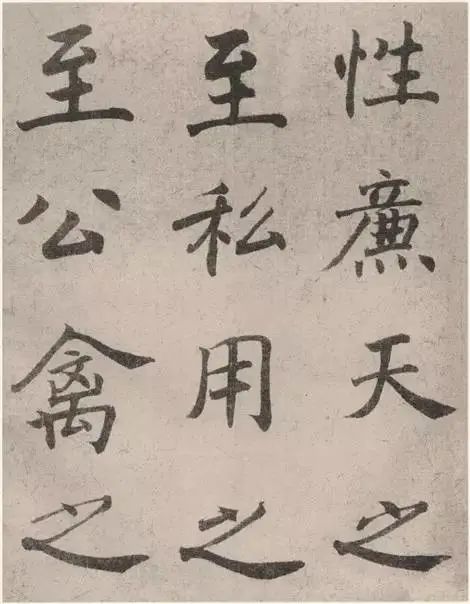 性廉天之
至私用之
至公禽之